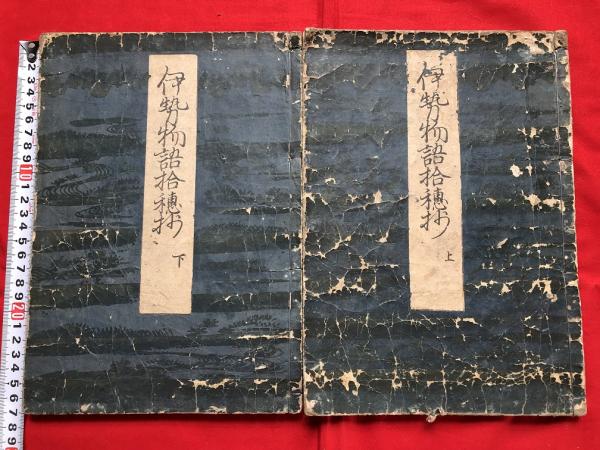 伊勢物語拾穂抄
上
伊勢物語拾穂抄
下
2 3 4 5 6 7 8 9 10 1 2 3 4 5 6 7 8 9 20 1 2 3 4 5 6 7 8 9